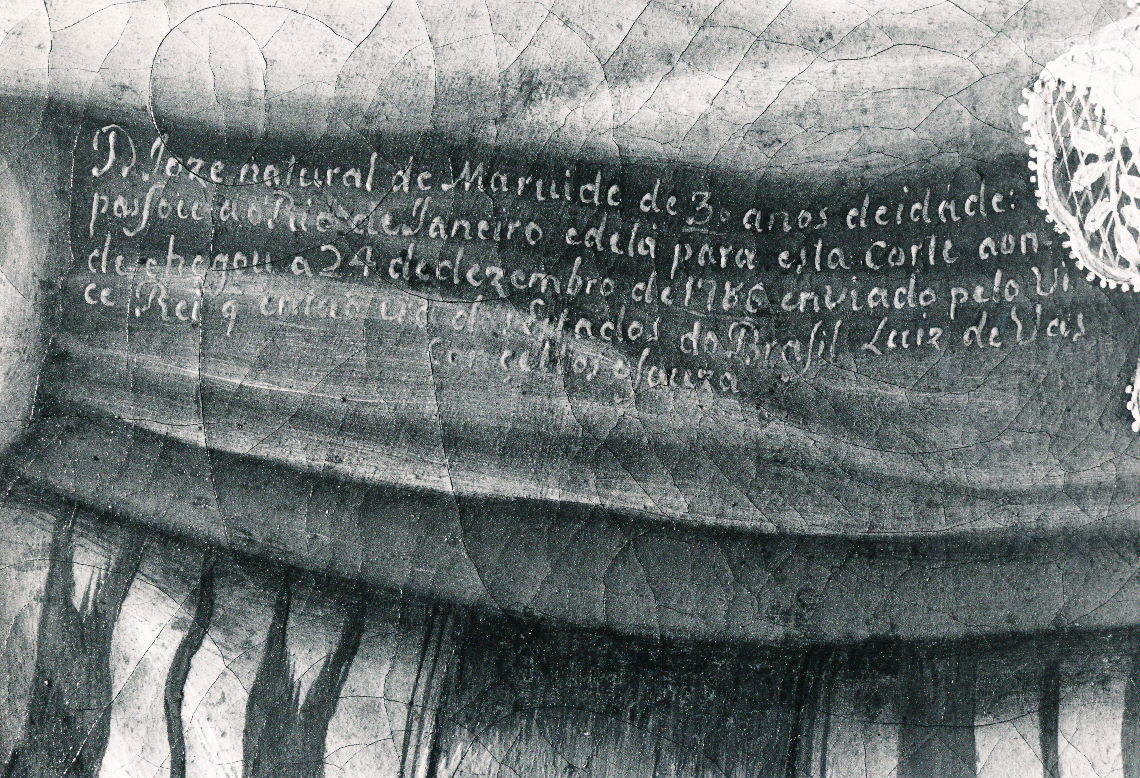 D. Joze natural de Maruide de 30 anos deidade:
passou ao Rio de Janeiro edela para esta Corte aon-
de chegou a 24 dedezembro de 1786 enviado pelo Vi
ce Rei q do Brasil Luiz de Vas
Con cellos eSouza